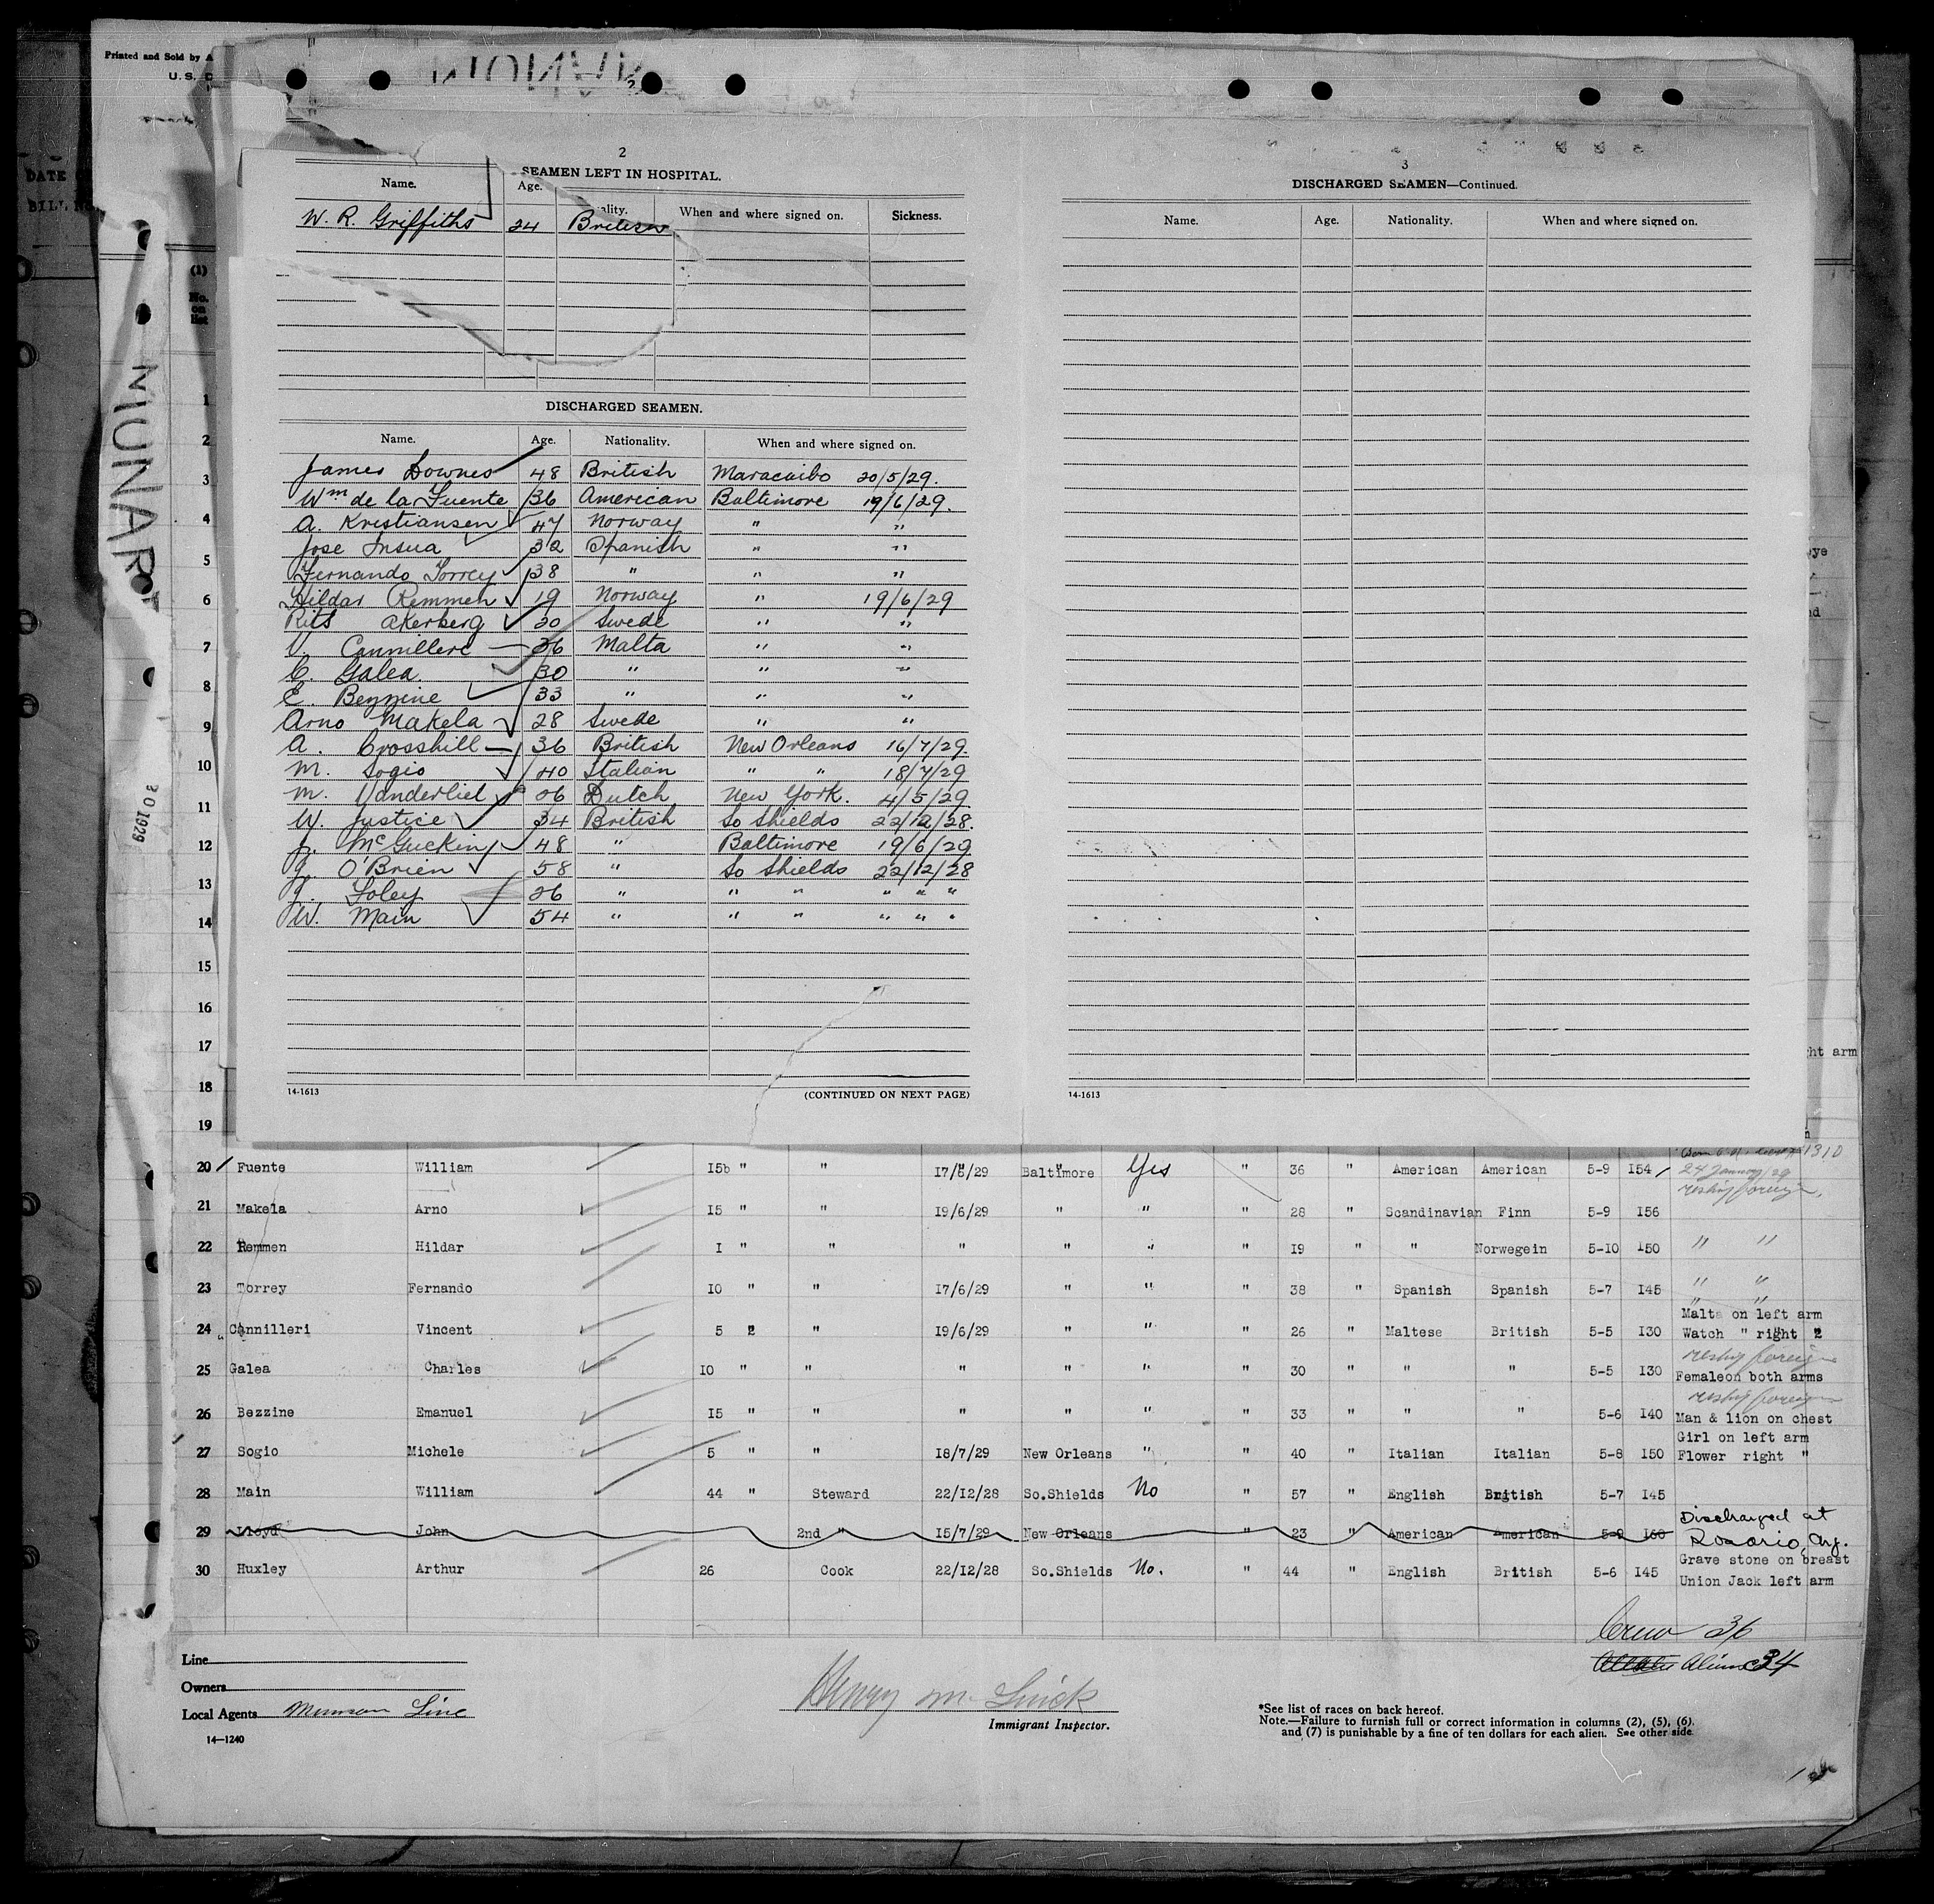 Printed and Sold by
U.S.
DATE
(1)
No.
on
list
MUNAR
30 1929
2
SEAMEN LEFT IN HOSPITAL.
Name. Age. ality. When and where signed on. Sickness.
W. R. Griffiths 24 British
DISCHARGED SEAMEN.
Name. Age. Nationality. When and where signed on.
James Downes 48 British Maracaibo 20/5/29.
Wm de la Fuente 36 American Baltimore 19/6/29.
A. Kristiansen 47 Norway " "
Jose Insua 32 Spanish " "
Fernando Torrey 38 " " "
Hildar Remmen 19 Norway " 19/6/29
Akerberg 20 Swede " "
V. Cannilleri 36 Malta " "
C. Galea. 30 " " "
E. Bezzine 33 " " "
Arno Makela 28 Swede " "
A. Crosshill 36 British New Orleans 16/7/29.
M. Sogio 40 Italian " " 18/7/29
M. Vanderliel 26 Dutch New York. 4/5/29
W. Justice 34 British So Shields 22/12/28.
J. McGucking 48 " Baltimore 19/6/29
J. O'Brien 58 " So Shields 22/12/28
J. Foley 26 " " " " " "
W. Main 54 " " " " " "
14-1613 (CONTINUED ON NEXT PAGE)
3
DISCHARGED SEAMEN—Continued.
Name. Age. Nationality. When and where signed on.
14-1613
1
2
3
4
5
6
7
8
9
10
11
12
13
14
15
16
17
18
19
ht arm
20 Fuente William 15b " " 17/6/29 Baltimore Yes " 36 " American American 5-9 154
21 Makela Arno 15 " " 19/6/29 " " " 28 " Scandinavian Finn 5-9 156
22 Remmen Hildar 1 " " " " " " 19 " " Norwegein 5-10 150 " "
23 Torrey Fernando 10 " " 17/6/29 " " " 38 " Spanish Spanish 5-7 145 " "
24 Cannilleri Vincent 5 2 " 19/6/29 " " " 26 " Maltese British 5-5 130 Malta on left arm
Watch " right "
25 Galea Charles 10 " " " " " " 30 " " " 5-5 130 Femaleon both arms
26 Bezzine Emanuel 15 " " " " " " 33 " " " 5-6 140 Man & lion on chest
Girl on left arm
27 Sogio Michele 5 " " 18/7/29 New Orleans " " 40 " Italian Italian 5-8 150 Flower right "
28 Main William 44 " Steward 22/12/28 So.Shields No " 57 " English British 5-7 145
29 Lloyd John 2nd " 15/7/29 New Orleans " 23 " American American 5-9 160 Discharged at
Rosario, Arg.
30 Huxley Arthur 26 Cook 22/12/28 So.Shields No. " 44 " English British 5-6 145 Grave stone on breast
Union Jack left arm
Crew 36
Aliens 34
Line
Owners
Local Agents Munson Line
14—1240
Immigrant Inspector.
*See list of races on back hereof.
Note.—Failure to furnish full or correct information in columns (2), (5), (6).
and (7) is punishable by a fine of ten dollars for each alien. See other side